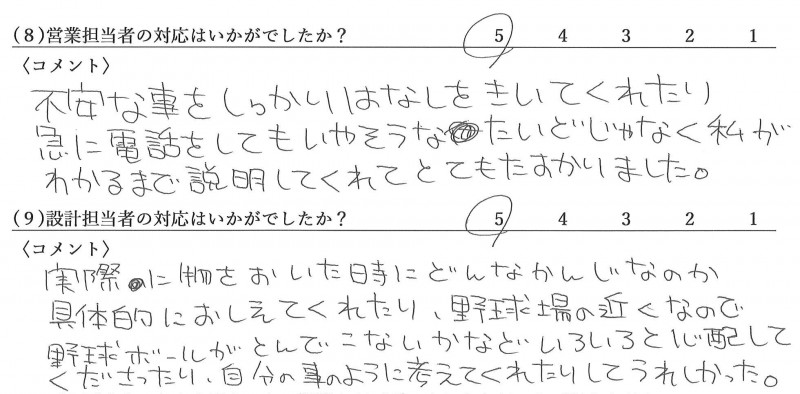 (8)営業担当者の対応はいかがでしたか？ 5 4 3 2 1
〈コメント〉
不安な事をしっかりはなしをきいてくれたり
急に電話をしてもいやそうなたいどじゃなく私が
わかるまで説明してくれてとてもたすかりました。
(9)設計担当者の対応はいかがでしたか？ 5 4 3 2 1
〈コメント〉
実際に物をおいた時にどんなかんじなのか
具体的におしえてくれたり、野球場の近くなので
野球ボールがとんでこないかなどいろいろと心配して
くださったり、自分の事のように考えてくれたりしてうれしかった。